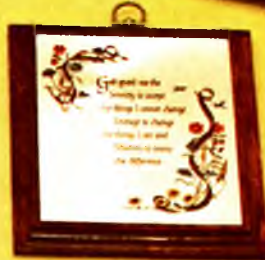 God grant me the
Serenity to accept
the things I cannot change
Courage to change
the things I can and
Wisdom to know
the difference